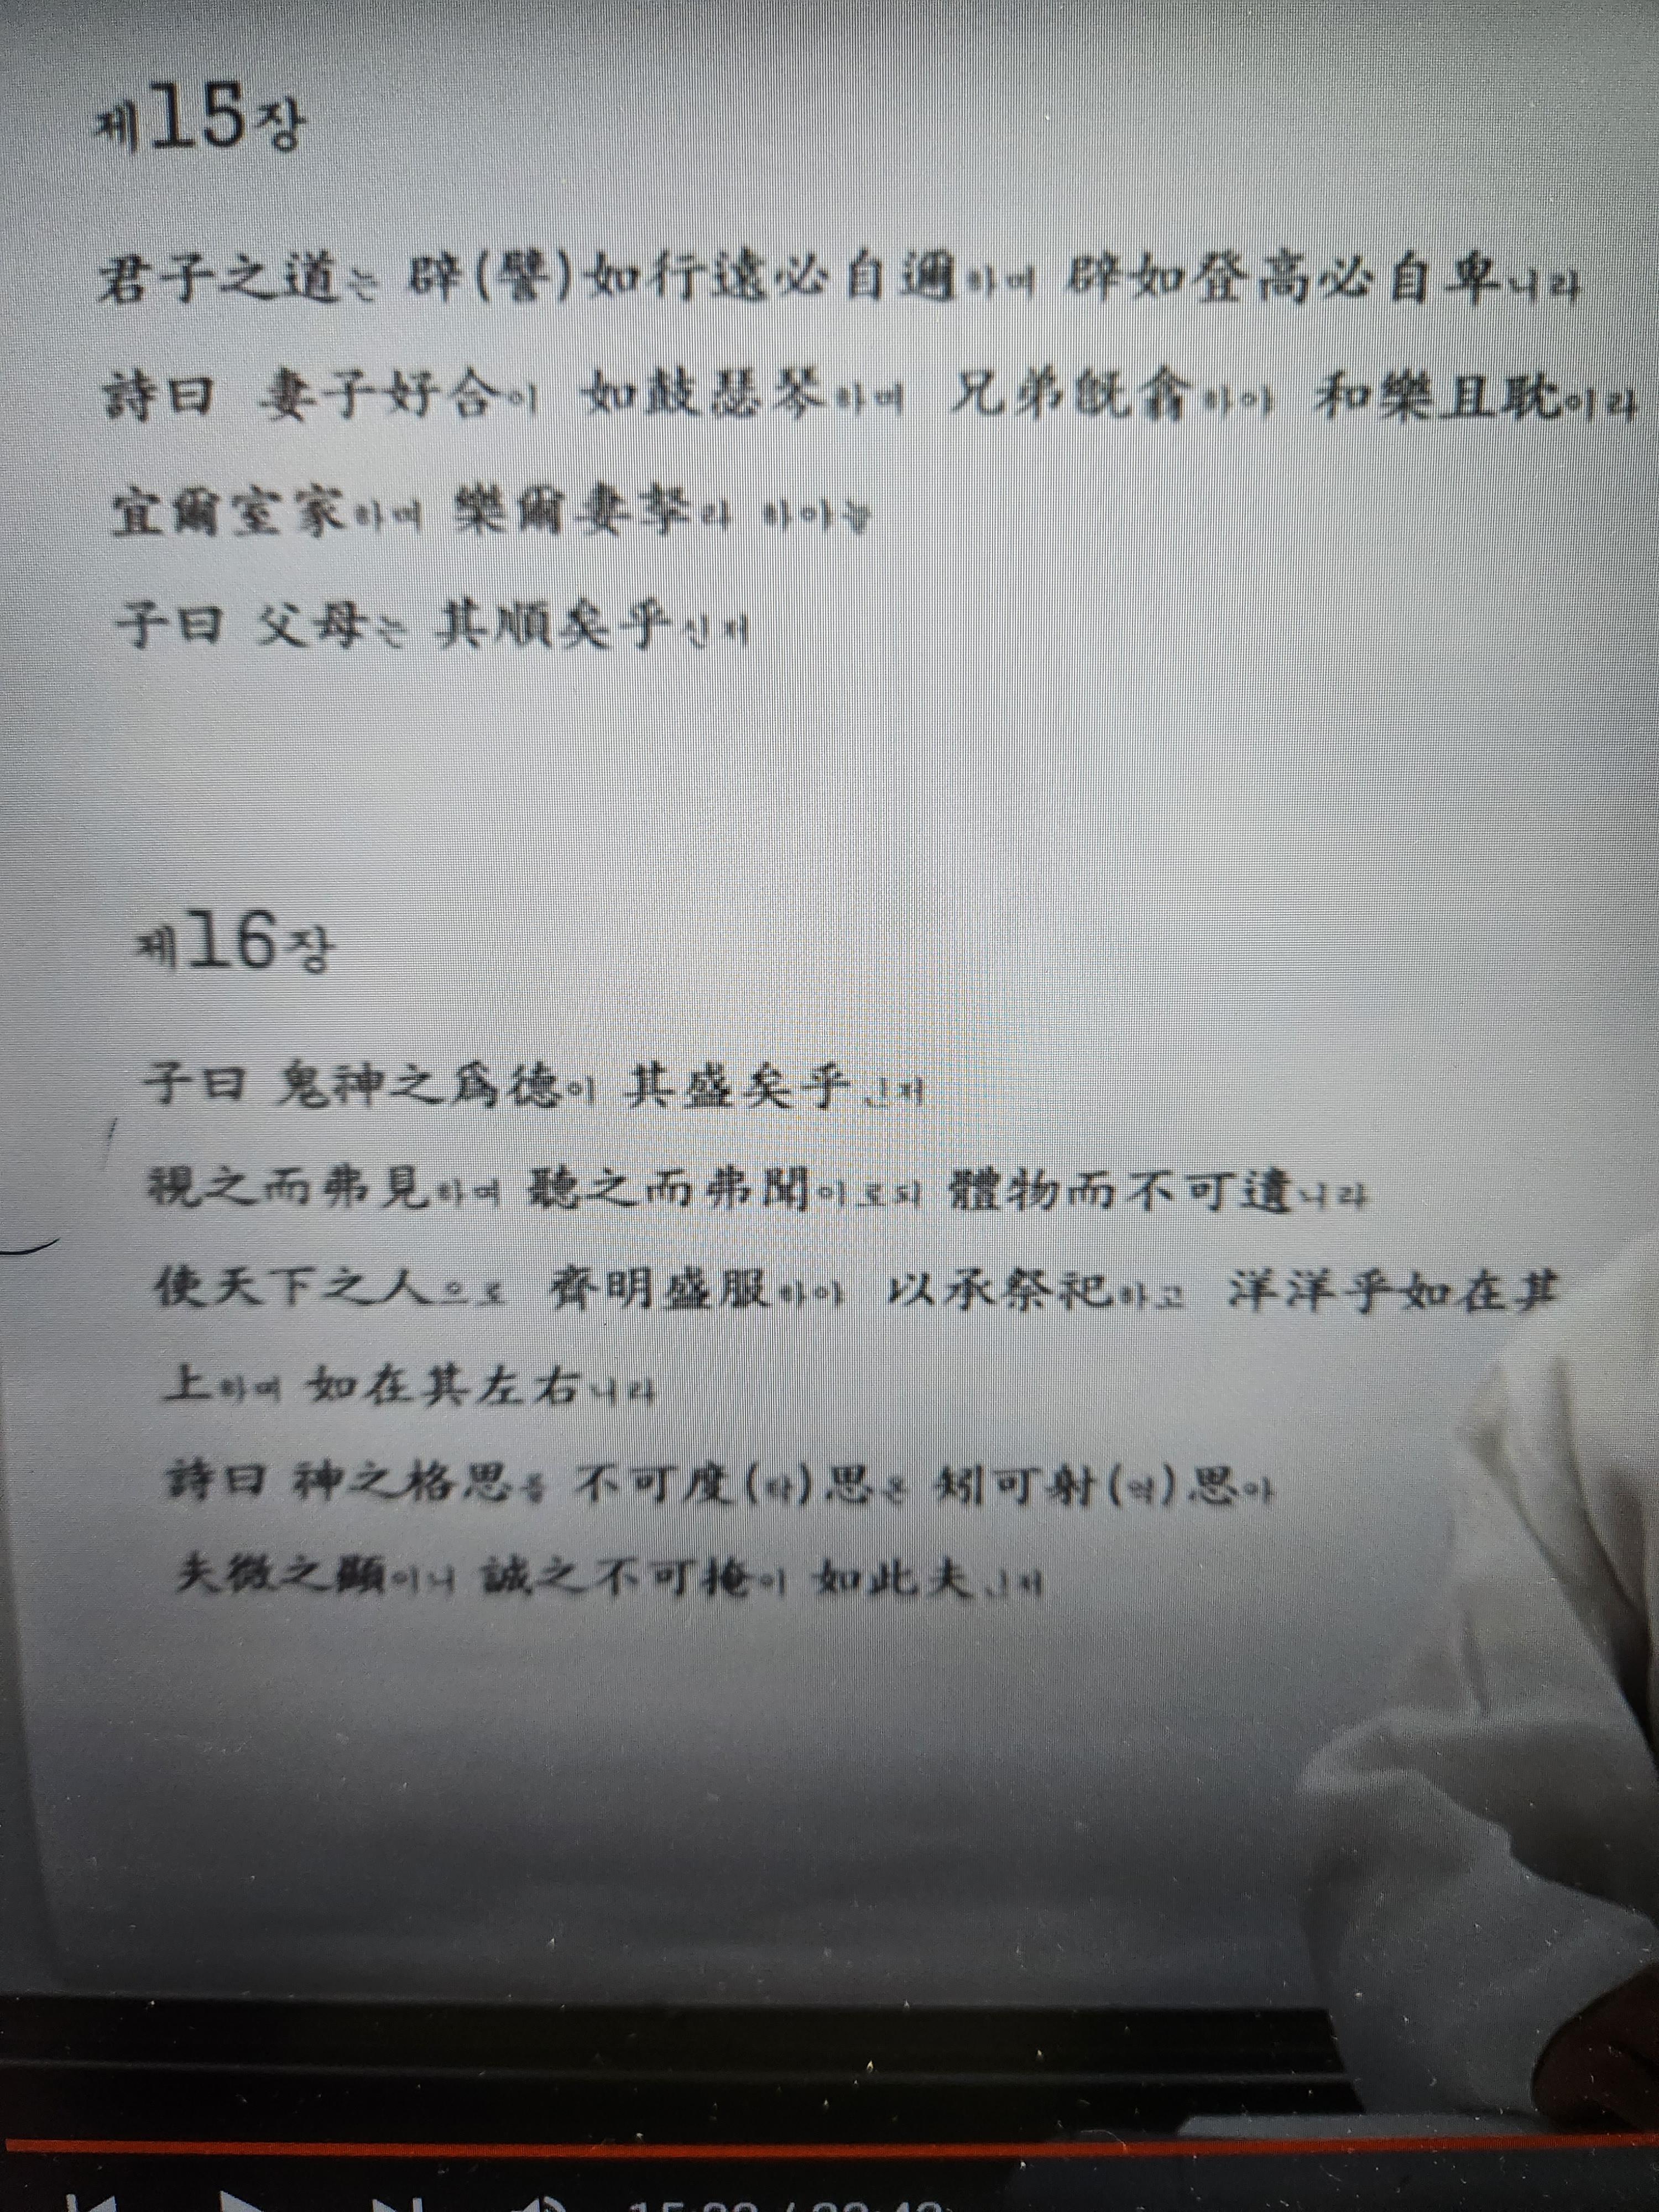 제15장
君子之道는 辟(譬)如行遠必自邇하며 辟如登高必自卑니라
詩曰 妻子好合이 如鼓瑟琴하며 兄弟旣翕하야 和樂且耽이라
宜爾室家하며 樂爾妻孥라 하야늘
子曰 父母는 其順矣乎신저
제16장
子曰 鬼神之爲德이 其盛矣乎ㄴ저
視之而弗見하며 聽之而弗聞이로되 體物而不可遺니라
使天下之人으로 齊明盛服하야 以承祭祀하고 洋洋乎如在其
上하며 如在其左右니라
詩曰 神之格思를 不可度(탁)思온 矧可射(역)思아
夫微之顯이니 誠之不可掩이 如此夫ㄴ저